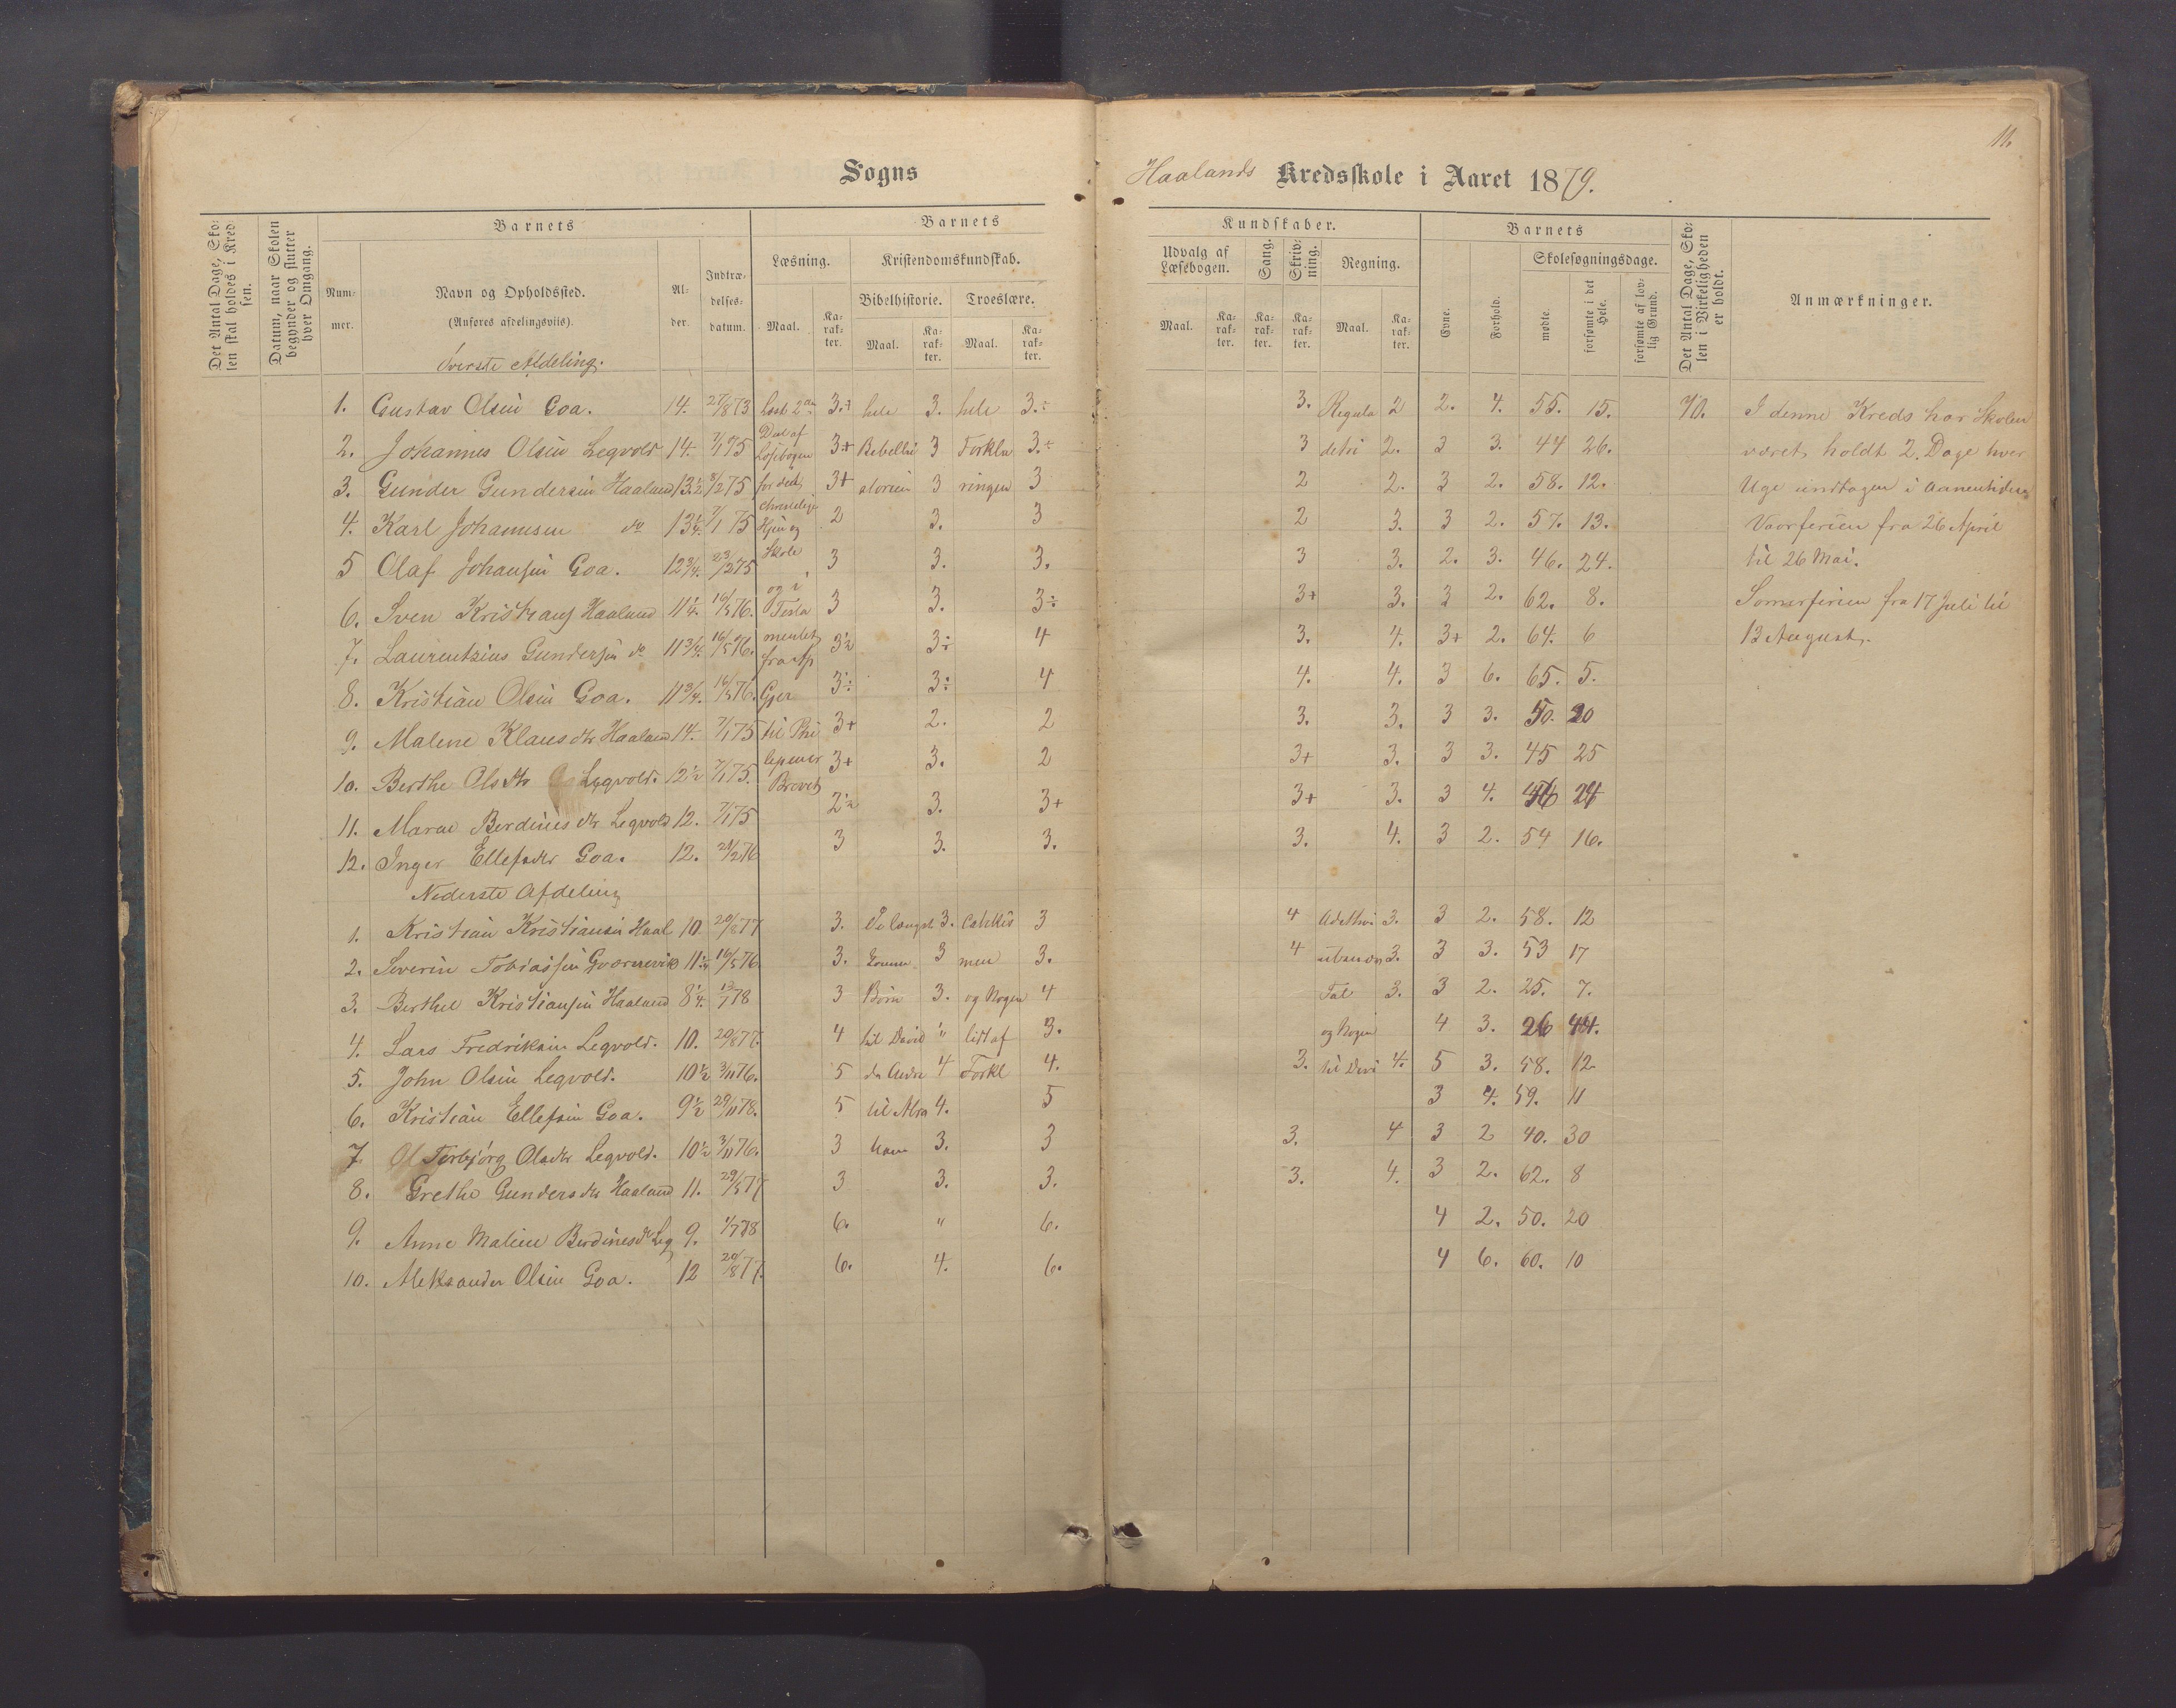 11.
Sogns
Haalands Kredsskole i Aaret 1879.
Det Antal Dage, Sko-
len skal holdes i Kred-
sen.
Datum, naar Skolen
begynder og slutter
hver Omgang.
Barnets
Num-
mer.
Navn og Opholdssted.
(Anføres afdelingsviis).
Al-
der.
Indtræ-
delses-
datum.
Barnets
Læsning.
Maal.
Ka-
rak-
ter.
Kristendomskundskab.
Bibelhistorie.
Maal.
Ka-
rak-
ter.
Troeslære.
Maal.
Ka-
rak-
ter.
Kundskaber.
Udvalg af
Læsebogen.
Maal.
Ka-
rak-
ter.
Sang.
Ka-
rak-
ter.
Skriv-
ning.
Ka-
rak-
ter.
Regning.
Maal.
Ka-
rak-
ter.
Barnets
Evne.
Forhold.
Skolesøgningsdage.
mødte.
forsømte i det
Hele.
forsømte af lov-
lig Grund.
Det Antal Dage, Sko-
len i Virkeligheden
er holdt.
Anmærkninger.
Øverste Afdeling.
1. Gustav Olsen Goa. 14. 27/8 73 Læst 2den 3.÷ hele 3. hele 3.÷ 3. Regula 2 2. 4. 55. 15. 70. I denne Kreds har Skolen
2. Johannes Olsen Legvold 14. 7/1 75 Deel af Læsebogen 3+ Bibelhi 3 Forkla 3.÷ 3 detri 2. 3 3. 44 26. været holdt 2 Dage hver
3. Gunder Gundersen Haaland 13 1/2 8/2 75 for det 3+ storien 3 ringen 3 2 2. 3 2. 58. 12. Uge undtagen i Aanentiden
4. Karl Johannesen do 13 1/4 7/1 75 christelige Hjem og 2 3. 3 2 3. 3 2. 57. 13. Vaarferien fra 26 April
5 Olaf Johansen Goa. 12 3/4. 23/2 75 Skole 3 3. 3. 3 3. 2. 3. 46. 24. til 26 Mai.
6. Sven Kristians Haaland 11 1/4 16/5 76. og i Testa 3 3. 3÷ 3+ 3. 3 2. 62. 8. Somerferien fra 17 Juli til
7. Laurentzius Gundersen do 11 3/4. 16/5 76. mentet fra Ap 3÷ 3÷ 4 3. 4. 3+ 2. 64. 6 13 August.
8. Kristian Olsen Goa. 11 3/4. 16/5 76. Gjer 3÷ 3÷ 4 4. 4. 3 6. 65. 5.
9. Malene Klausdtr Haaland 14. 7/1 75 til Phi 3+ 2. 2 3. 3. 3 3. 50. 20
10. Berthe Olsdtr Legvold. 12 1/2 7/1 75. lipenser Brevet 3+ 3. 2 3+ 3. 3 3. 45 25
11. Maren Berdinesdtr Legvold 12. 7/1 75 2÷ 3. 3+ 3+ 3. 3 4. 46 24
12. Inger Ellefsdtr Goa. 12. 28/2 76 3 3. 3. 3. 4. 3 2. 54 16.
Nederste Afdeling
1. Kristian Kristiansen Haal 10 20/8 77 3. De længst 3. Catekis 3 4 Adskil 3. 3 2. 58. 12
2. Severin Tobiassen Gvarnevik 11 1/4 16/5 76. 3. komne 3 men 3. 4 ubenævn 3. 3 3. 53 17
3. Berthel Kristiansen Haaland 8 1/4. 13/7 78 3 Børn 3. og Nogen 4 Tal 3. 3 2. 25. 7.
4. Lars Fredriksen Legvold. 10. 20/8 77. 4 til David " lidt af 3. og Nogen 4 3. 26 44.
5. John Olsen Legvold. 10 1/2 3/11 76. 5 de Andre 4 Forkl 4. 3. til Divi 4. 5 3. 58. 12
6. Kristian Ellefsen Goa. 9 1/2 29/11 78. 5 til Abra 4. 5 3 4. 59. 11
7 Torbjörg Olsdtr Legvold. 10 1/2 3/11 76. 3 ham 3. 3 3. 4 3 2 40. 30
8. Grethe Gundersdtr Haaland 11. 29/5 77 3 3. 3. 3. 4. 3 2. 62. 8
9. Anne Malene Berdinesdtr Leg 9. 1/7 78 6. " 6. 4 2. 50. 20
10. Aleksander Olsen Goa. 12 20/8 77. 6. 4. 6. 4 6. 60. 10